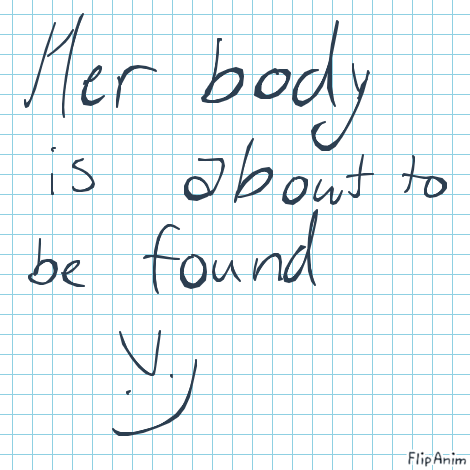 Her body
is about to
be found
FlipAnim